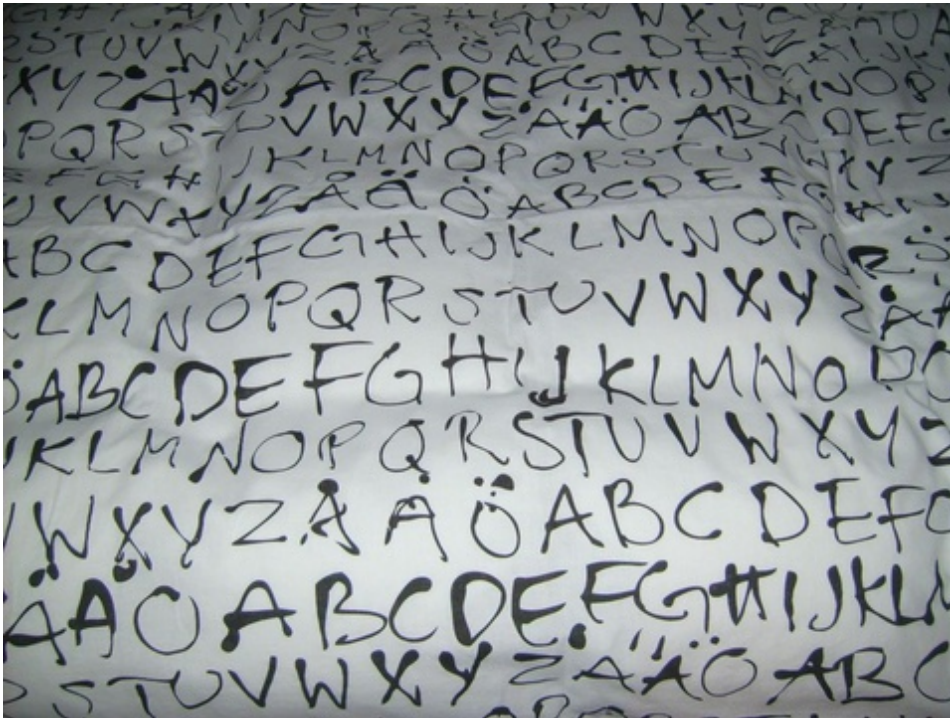 S T U V W X Y Z Å Ä Ö A B C D E F
X Y Z Å Ä Ö A B C D E F G H I J K L M N O P
P Q R S T U V W X Y Z Å Ä Ö A B C D E F G
E F G H I J K L M N O P Q R S T U V W X Y Z
U V W X Y Z Å Ä Ö A B C D E F G H I
A B C D E F G H I J K L M N O P Q R S
K L M N O P Q R S T U V W X Y Z Å Ä
Ö A B C D E F G H I J K L M N O P Q
J K L M N O P Q R S T U V W X Y Z
V W X Y Z Å Ä Ö A B C D E F G
Å Ä Ö A B C D E F G H I J K L M
R S T U V W X Y Z Å Ä Ö A B C